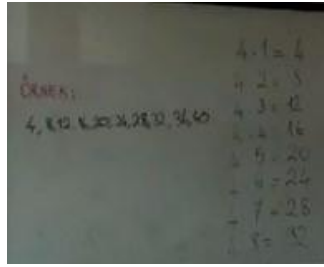 ÖRNEK:
4, 8, 12, 16, 20, 24, 28, 32, 36, 40
4.1=4
4.2=8
4.3=12
4.4=16
5=20
=24
7=28
8=32